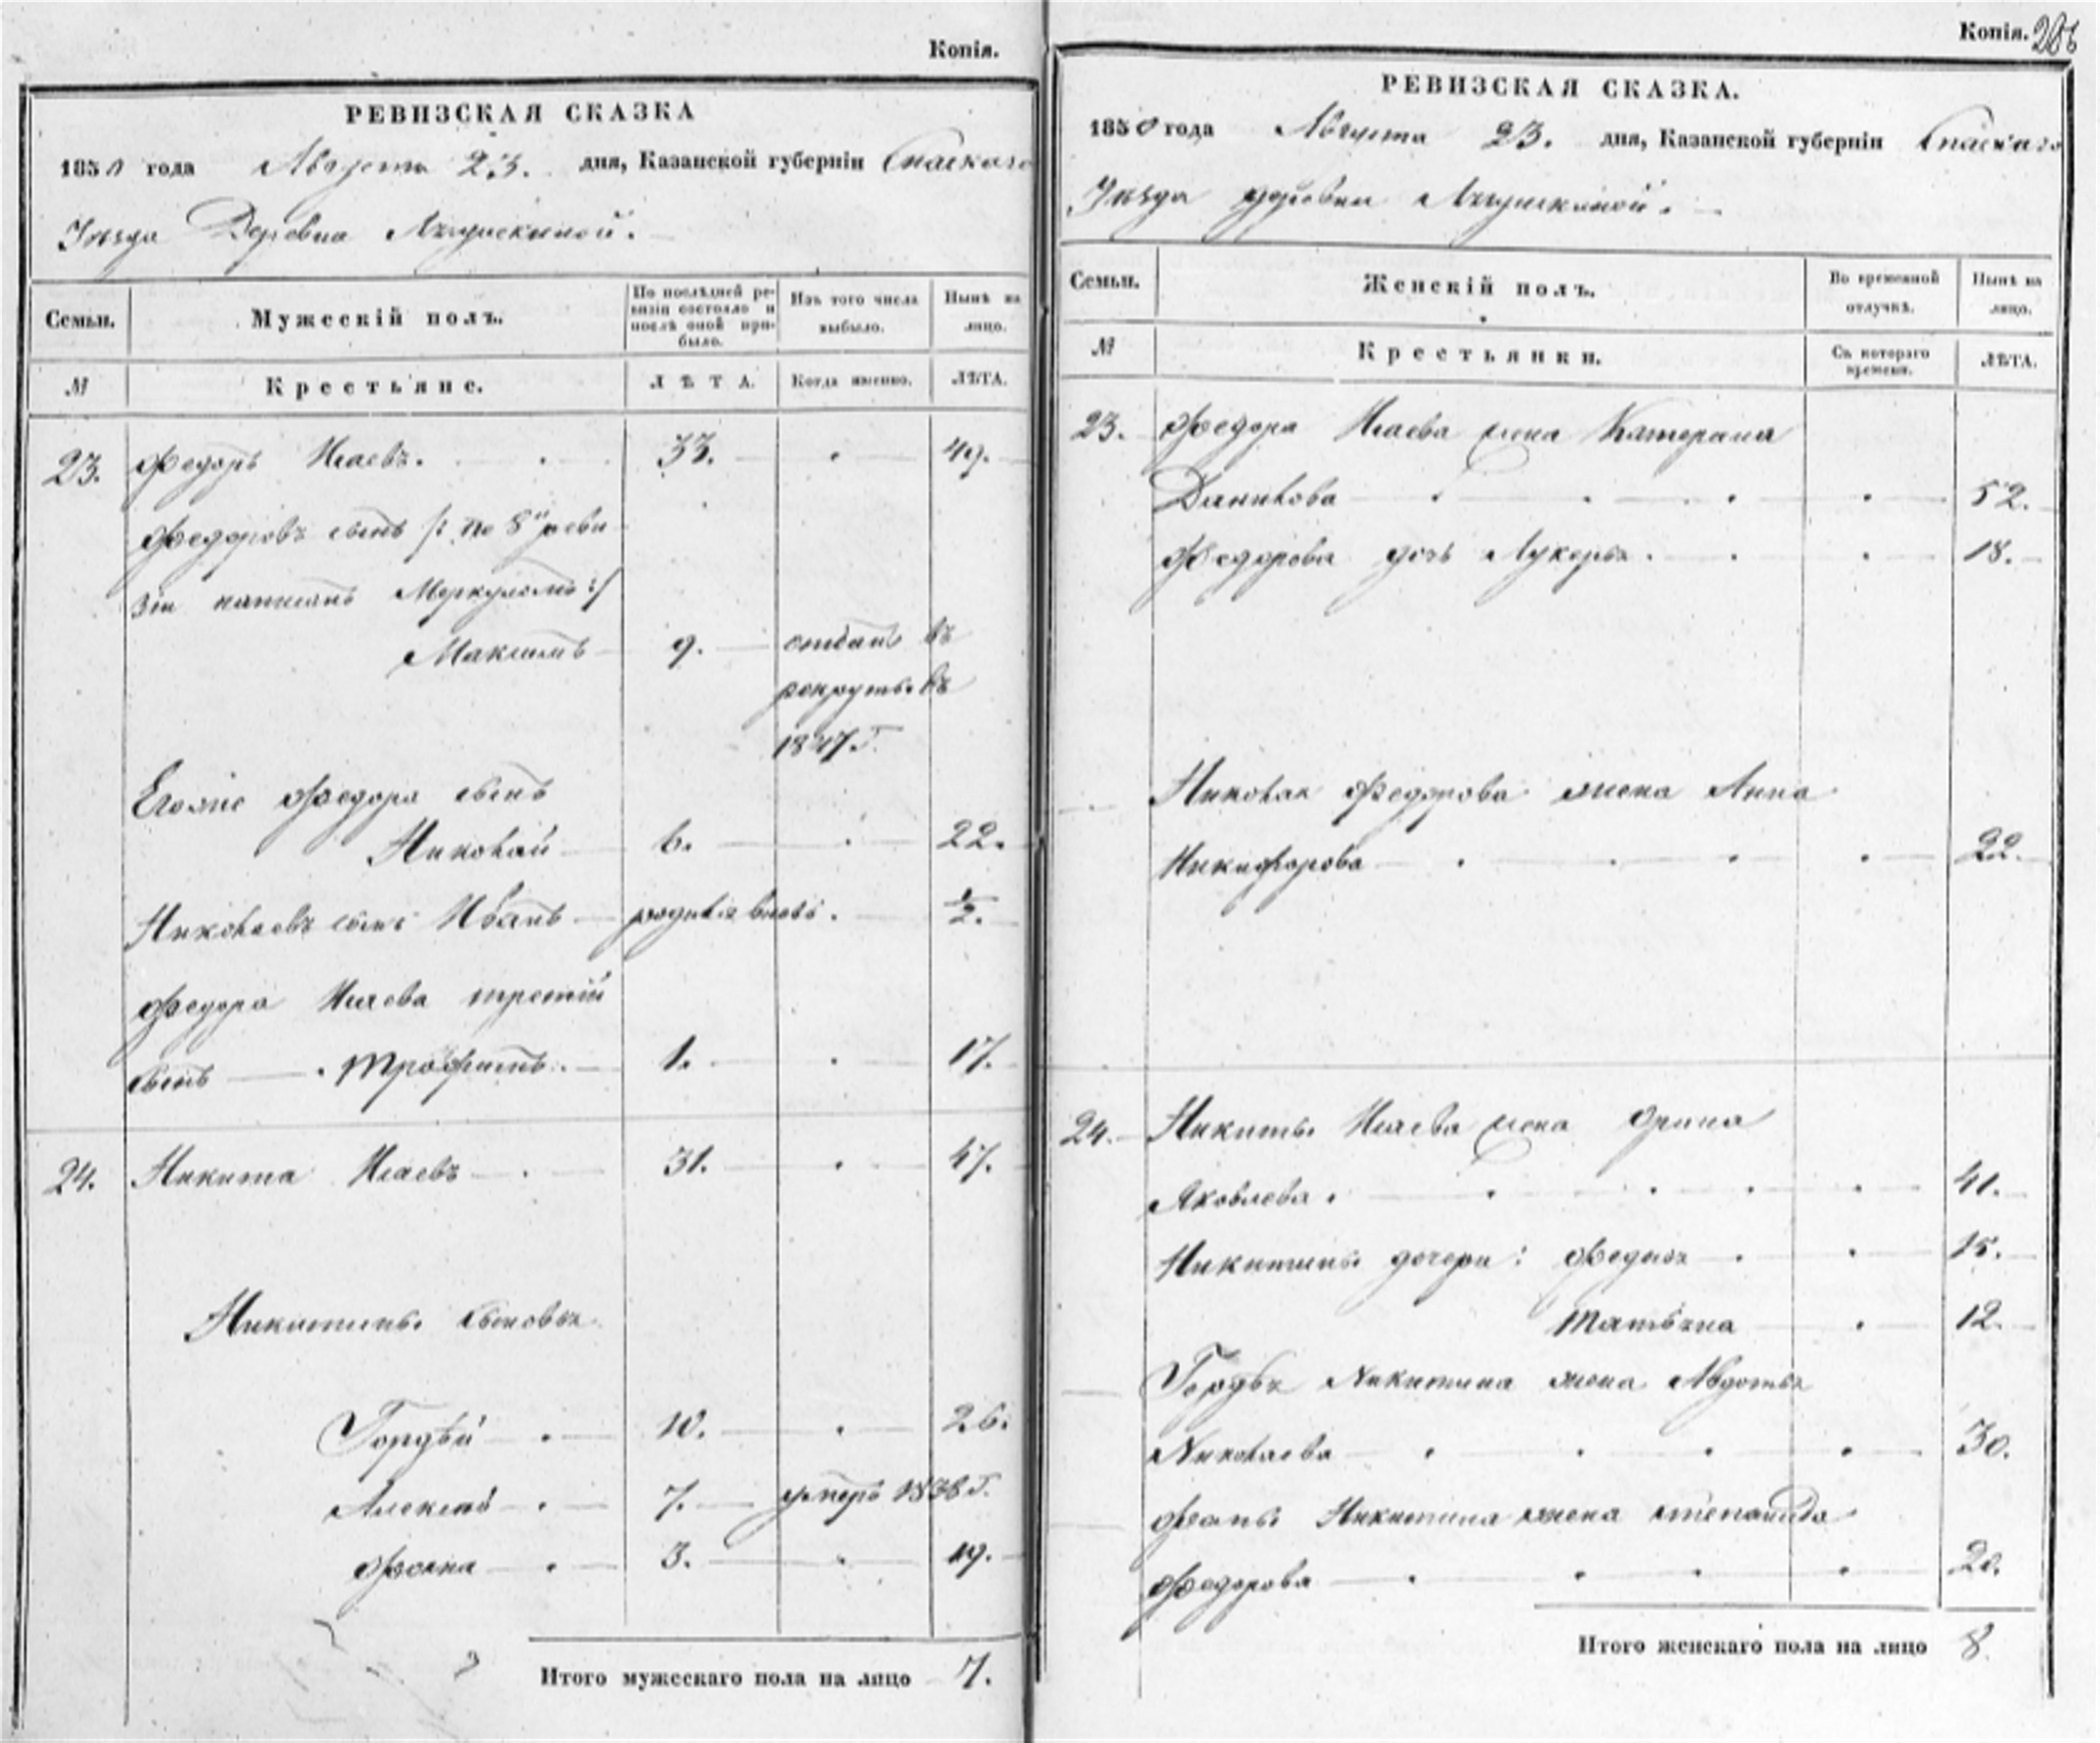 Копія.
РЕВИЗСКАЯ СКАЗКА
1850 года Августа 23. дня, Казанской губерніи Спаскаго
Уѣзда Деревна
Семьи.
Мужескій полъ.
По послѣдней ре-
визіи состояло и
послѣ оной при-
было.
Изъ того числа
выбыло.
Нынѣ на
лицо.
№
Крестьяне.
ЛѢТА.
Когда именно.
ЛѢТА.
23. Федоръ Исаевъ. 33. 49.
Федоровъ сынъ /: по 8й реви
зіи написанъ Меркуломъ :/
Максимъ 9. отданъ въ
рекруты въ
1847 г.
Егоже Федора сынъ
Николай 6. 22.
Николаевъ сынъ Иванъ родился вновь. 1/2.
Федора Исаева третій
сынъ Трофимъ. 1. 17.
24. Никита Исаевъ 31. 47.
Никитины сыновья
Гордѣй 10. 26.
Алексѣй 7. умеръ 1838 г.
Фока 3. 19.
Итого мужескаго пола на лицо 7.
Копія. 206
РЕВИЗСКАЯ СКАЗКА.
1850 года Августа 23. дня, Казанской губерніи Спаскаго
Уѣзда деревни
Семьи.
Женскій полъ.
Во временной
отлучкѣ.
Нынѣ на
лицо.
№
Крестьянки.
Съ котораго
времени.
ЛѢТА.
23. Федора Исаева жена Катерина
Данилова 52.
Федорова дочь Лукерья. 18.
Николая Федорова жена Анна
Никифорова 22.
24. Никиты Исаева жена Орина
Яковлева. 41.
Никитины дочери: Федося 15.
Татьяна 12.
Гордѣя Никитина жена Авдотья
Николаева 30.
Фоки Никитина жена Степанида
Федорова 20.
Итого женскаго пола на лицо 8.